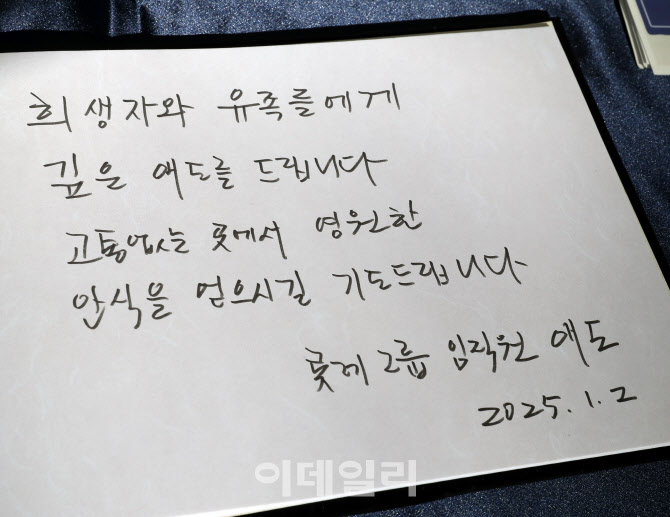 희생자와 유족들에게
깊은 애도를 드립니다
고통없는 곳에서 영원한
안식을 얻으시길 기도드립니다
그룹 임직원 애도
2025.1.2
이데일리